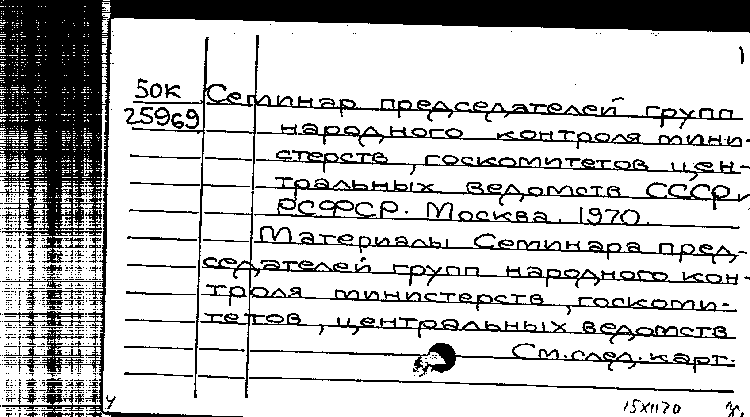 1
50К Семинар председателей групп
25969 народного контроля мини-
стерств, госкомитетов цен-
тральных ведомств СССР и
РСФСР. Москва. 1970.
Материалы Семинара пред-
седателей групп народного кон-
троля министерств, госкоми-
тетов, центральных ведомств
См. след. карт.
15XII70